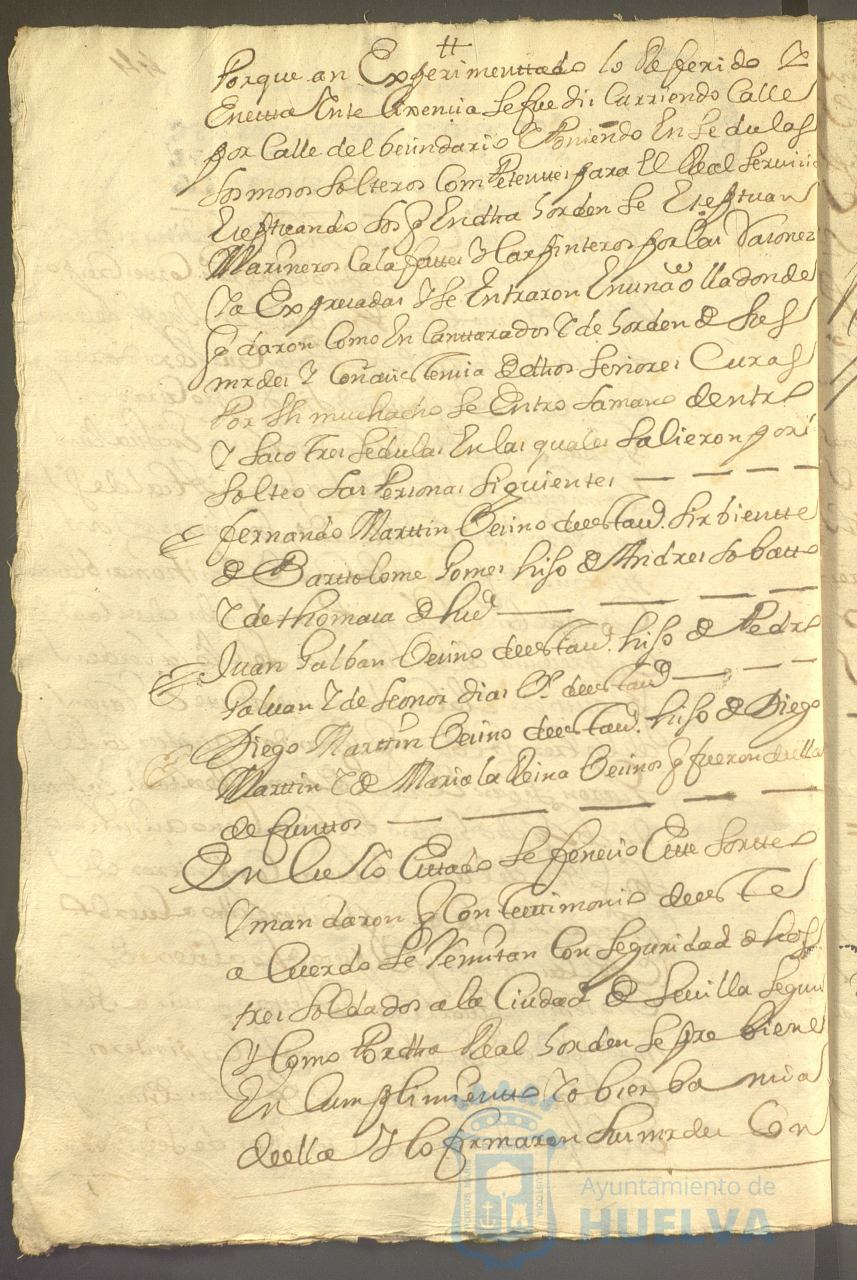 tt
Porque an Experimentado lo Referido Y
En esta Inteligencia se fue discurriendo Calle
por Calle del becindario Poniendo En sedulas
los mosos solteros Competentes para El Real servicio
los q En dha horden se Eseptuan
Marineros Calafattes Y Carpinteros por las Rasones
Ya Expresadas Y se Entraron En una olla donde
q daron como En Cantarados Y de horden de sus
mrdes Y Con asistencia de dhos señores Curas
Por Un muchacho se Entro la mano dentro
Y saco tres sedulas En las quales salieron por
solteo las Personas siguientes
fernando Marttin Vecino de esta Va. sirbiente
de Barttolome Gomes hijo de Andres
Y de thomasa de
Juan Galban Vecino de esta Va. hijo de Pedro
Galuan Y de leonor dias Vs. de esta Va
Diego Marttin Vecino de esta Va. hijo de Diego
Marttin Y de Maria la Reina Vecinos q fueron de ella
difunttos
En Cuio Estado se fenecio Este sortteo
Y man daron q Con testtimonio de este
a Cuerdo se Remitan Con seguridad dhos
tres soldados a la Ciudad de Sevilla segun
Y Como Por dha Real horden se pre biene
En Cumplimiento Y obserbancia
de ella Y lo firmaron sus mrdes Con
Ayuntamiento de
HUELVA